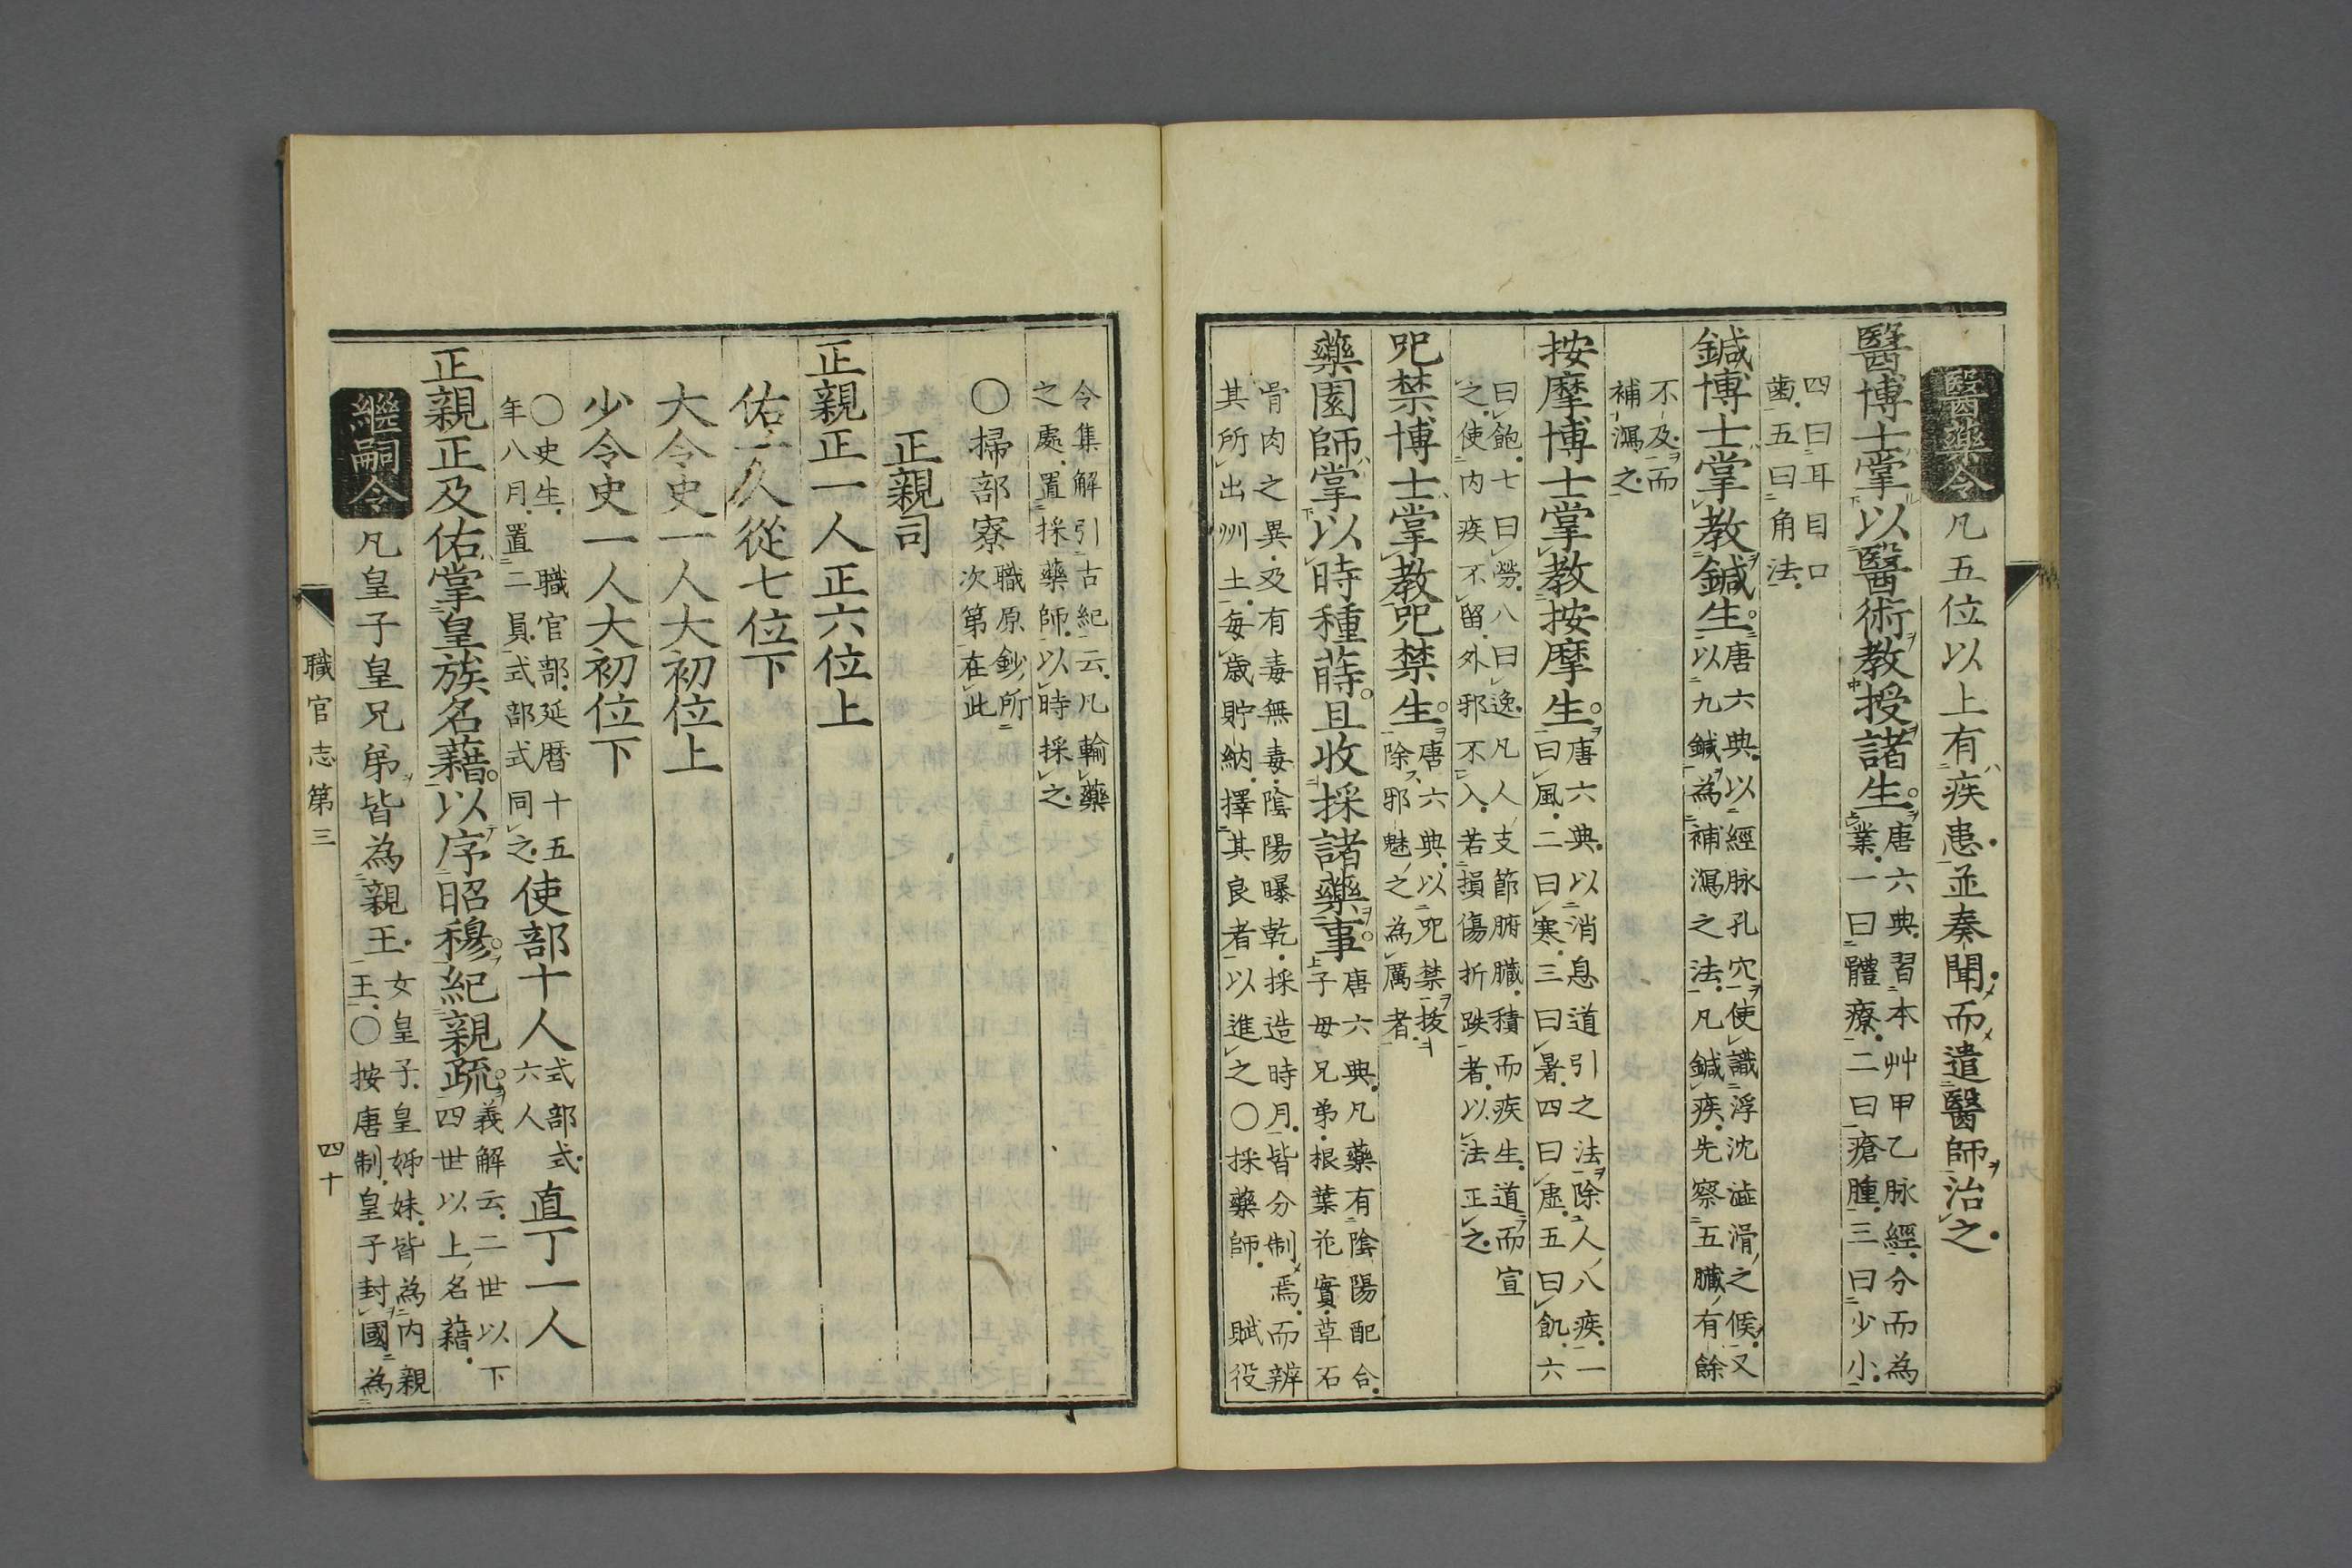 醫藥令 凡五位以上有疾患並奏聞而遣醫師治之
醫博士掌以醫術教授諸生
唐六典習本艸甲乙脉經分而為
業一曰體療二曰瘡腫三曰少小
四曰耳目口
齒五曰角法
鍼博士掌教鍼生
唐六典以經脉孔穴使識浮沈澁滑之候又
以九鍼為補瀉之法凡鍼疾先察五臟有餘
不及而
補瀉之
按摩博士掌教按摩生
唐六典以消息道引之法除人八疾一
曰風二曰寒三曰暑四曰虛五曰飢六
曰飽七曰勞八曰逸凡人支節腑臟積而疾生道而宣
之使内疾不留外邪不入若損傷折跌者以法正之
咒禁博士掌教咒禁生
唐六典以咒禁拔
除邪魅之為厲者
藥園師掌以時種蒔且收採諸藥事
唐六典凡藥有陰陽配合
子母兄弟根葉花實草石
骨肉之異及有毒無毒陰陽曝乾採造時月皆分制焉而辨
其所出州土每歲貯納擇其良者以進之○採藥師賦役
令集解引古紀云凡輸藥
之處置採藥師以時採之
○掃部寮
職原鈔所
次第在此
正親司
正親正一人正六位上
佑一人從七位下
大令史一人大初位上
少令史一人大初位下
○史生職官部延暦十五
年八月置二員式部式同之
使部十人
式部式
六人
直丁一人
正親正及佑掌皇族名藉以序昭穆紀親疏
義解云二世以下
四世以上名藉
繼嗣令 凡皇子皇兄弟皆為親王
女皇子皇姊妹皆為内親
王○按唐制皇子封國為
職官志第三
四十